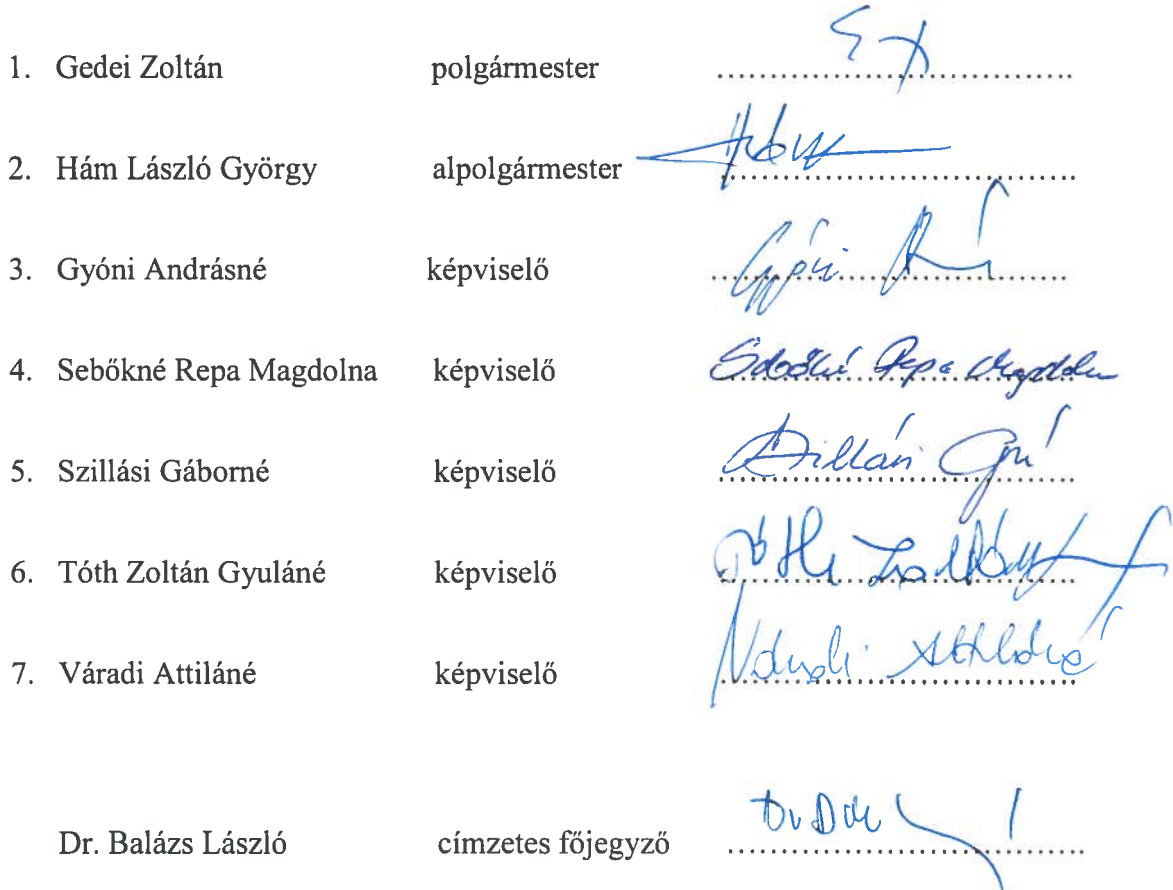 1. Gedei Zoltán polgármester ........................................
2. Hám László György alpolgármester ........................................
3. Gyóni Andrásné képviselő ........................................
4. Sebőkné Repa Magdolna képviselő Sebőkné Repa Magdolna
5. Szillási Gáborné képviselő Szillási Gné
6. Tóth Zoltán Gyuláné képviselő ........................................
7. Váradi Attiláné képviselő Váradi Attiláné
Dr. Balázs László címzetes főjegyző ........................................